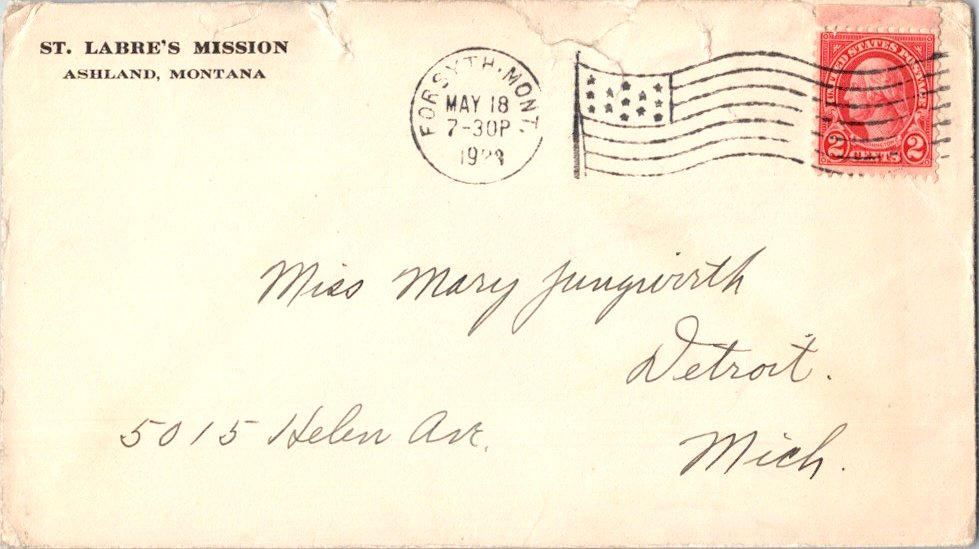 ST. LABRE'S MISSION
ASHLAND, MONTANA
FORSYTH, MONT.
MAY 18
7-30P
UNITED STATES POSTAGE
2 CENTS 2
Miss Mary Jungwirth
Detroit.
5015 Helen Ave.
Mich.